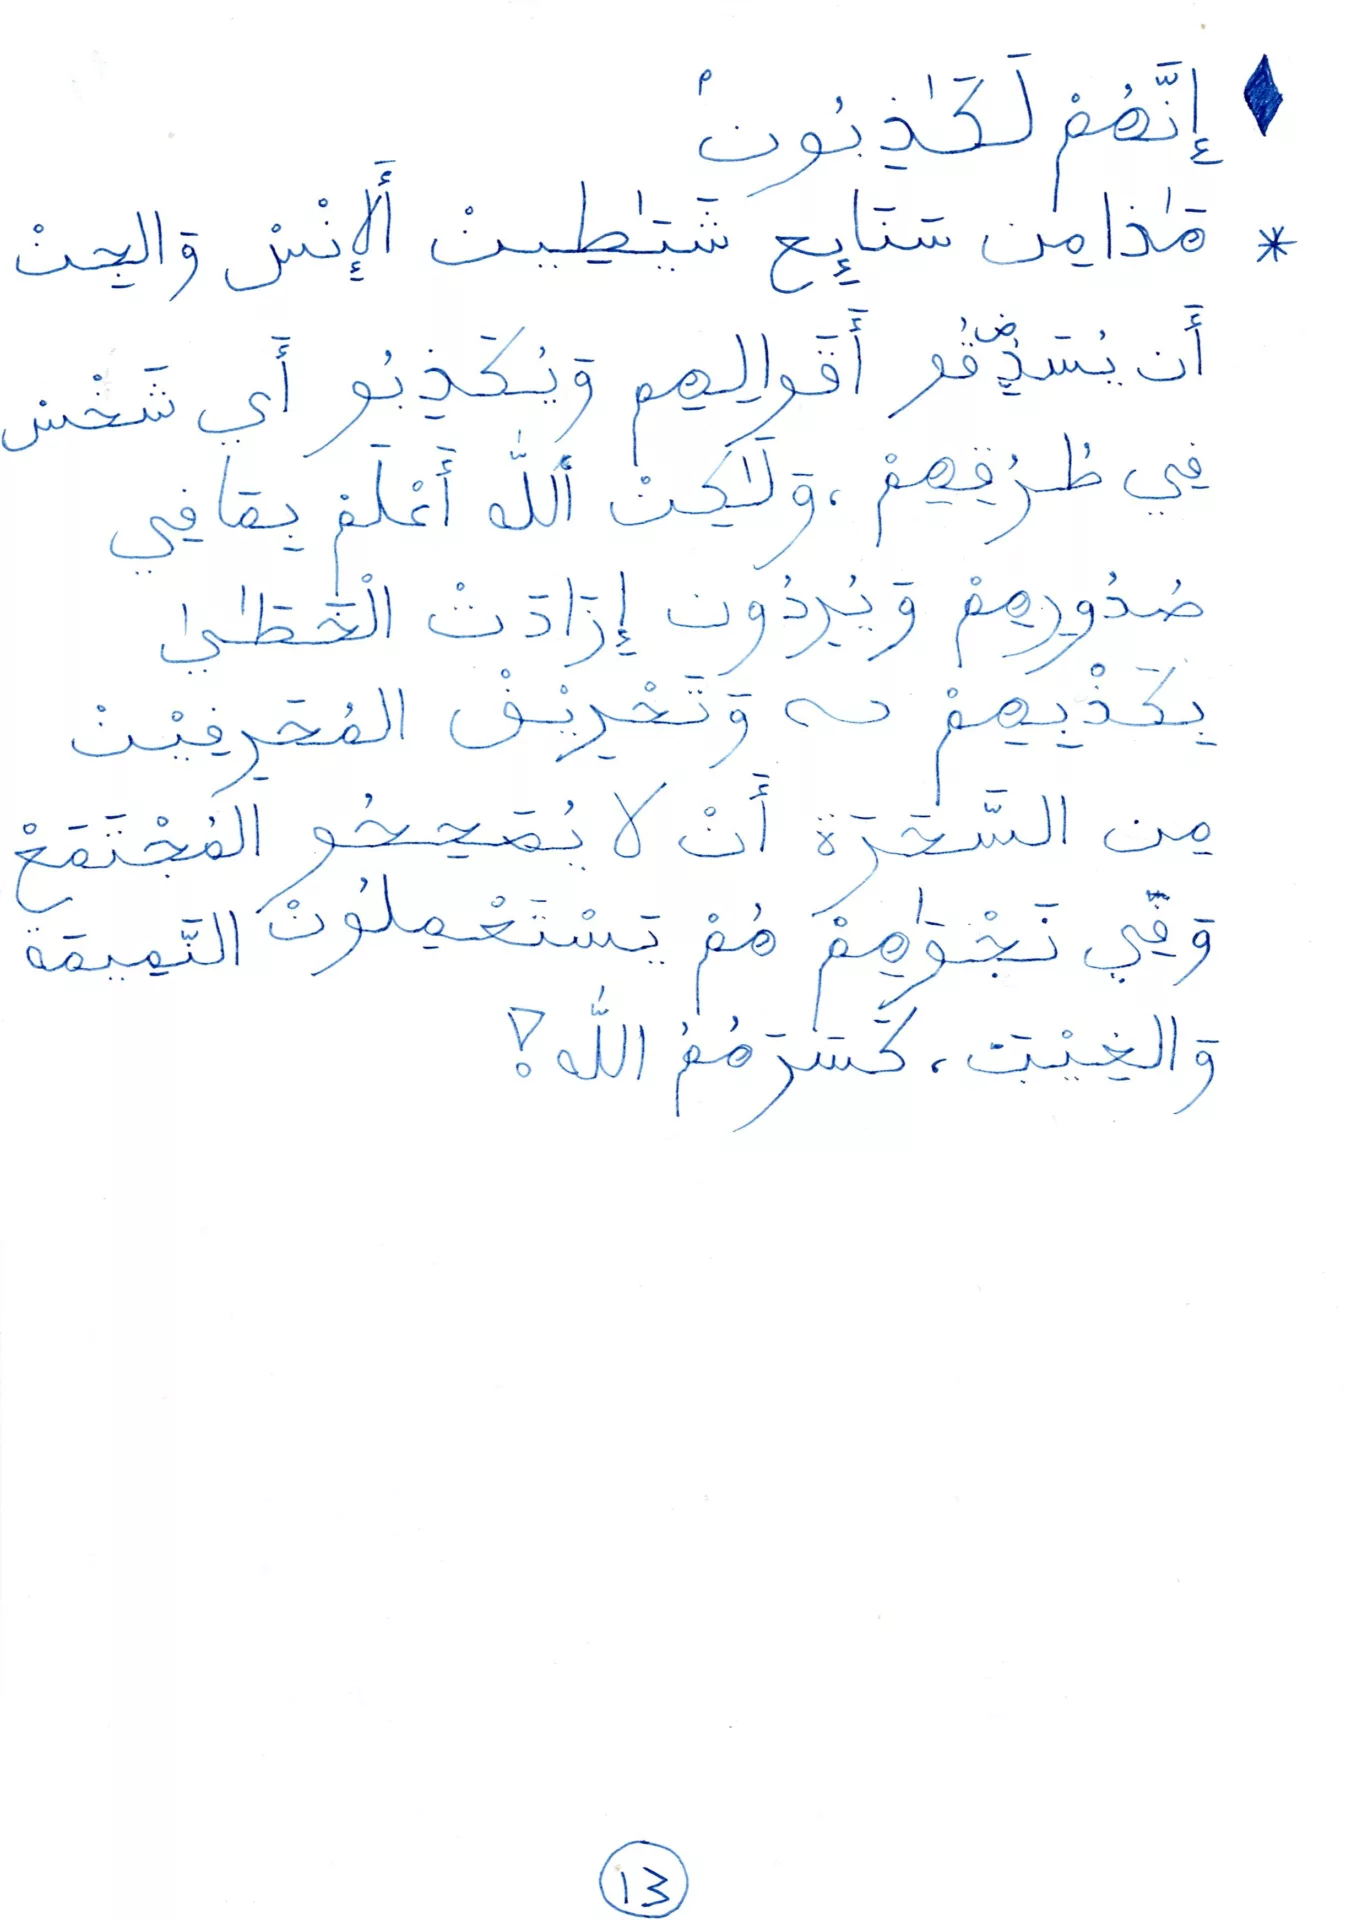 إِنَّهُمْ لَكَٰذِبُونَ
* مَٰذَا مِن سَتَائِع شَيَٰطِينْ أَلإِنْسْ وَالجِنْ
أَن يُسَدِّقُو أَقَوالِهِم وَيُكَذِبُو أَي شَخْس
فِي طُرُقِهِمْ، وَلَٰكِنْ أَللَّه أَعْلَمْ بِمَا فِي
صُدُورِهِمْ وَيُرِدُون إِرَادَتْ الْخَطَٰيٰ
بِكَذْبِهِمْ ~ وَتَحْرِيْفْ المُحَرِفِيْنْ
مِن السَّحَرَة أَنْ لا يُصَحِحُو المُجْتَمَعْ
وَفِّي نَجْوَٰهِمْ هُمْ يَسْتَعْمِلُونْ النَّمِيمَة
وَالغِيْبَت، كَسَرَهُمُ اللَّه؟
١٣